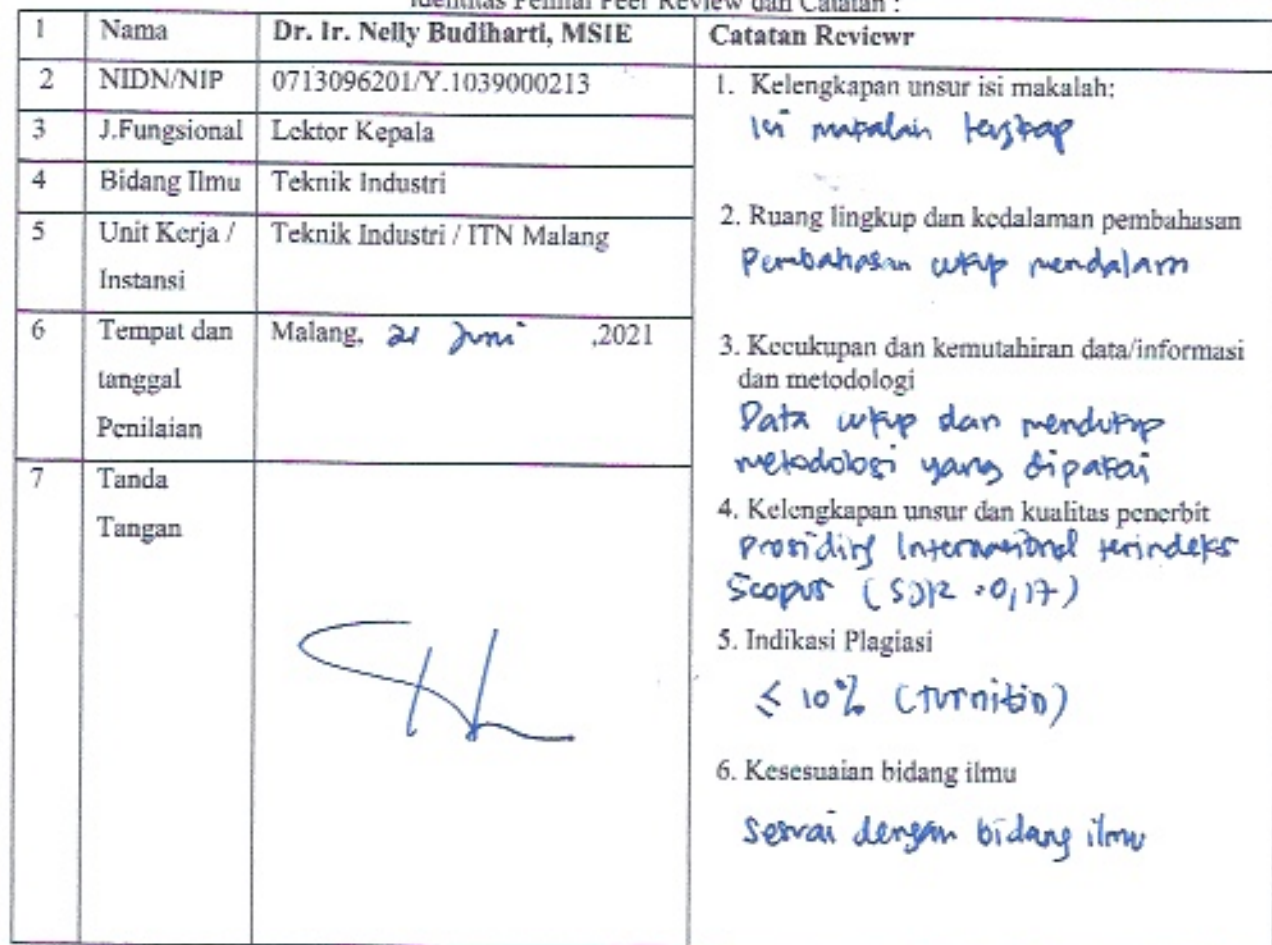 Identitas Penilai Peer Review dan Catatan :
1 Nama Dr. Ir. Nelly Budiharti, MSIE
2 NIDN/NIP 0713096201/Y.1039000213
3 J.Fungsional Lektor Kepala
4 Bidang Ilmu Teknik Industri
5 Unit Kerja / Teknik Industri / ITN Malang
Instansi
6 Tempat dan Malang, 21 Juni ,2021
tanggal
Penilaian
7 Tanda
Tangan
Catatan Reviewr
1. Kelengkapan unsur isi makalah:
Isi makalah lengkap
2. Ruang lingkup dan kedalaman pembahasan
Pembahasan cukup mendalam
3. Kecukupan dan kemutahiran data/informasi
dan metodologi
Data cukup dan mendukung
metodologi yang dipakai
4. Kelengkapan unsur dan kualitas penerbit
Prosiding Internasional terindeks
Scopus (SJR =0,17)
5. Indikasi Plagiasi
≤ 10% (Turnitin)
6. Kesesuaian bidang ilmu
Sesuai dengan bidang ilmu